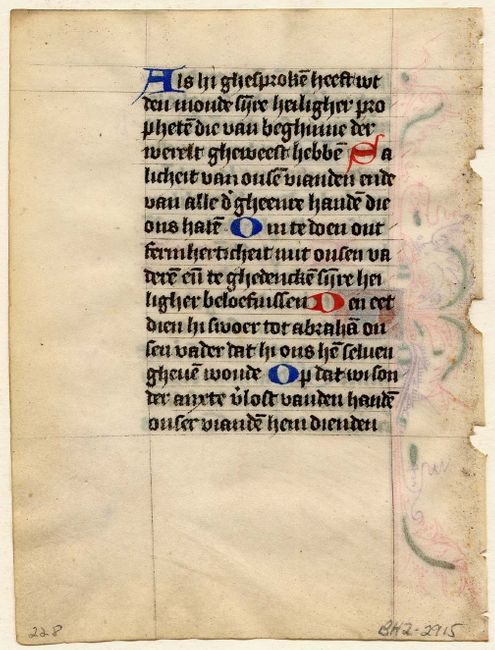 Als hi ghesprokē heeft wt
den monde sijre heiligher pro
phetē die van beghinne der
werelt gheweest hebbē Sa
licheit van onsē vianden ende
van alle d̕ gheenre handē die
ons hatē Om te doen ont
fermherticheit mit onsen va
derē eñ te ghedenckē sijre hei
ligher beloefnissen Den eet
dien hi swoer tot abrahā on
sen vader dat hi ons hē seluen
gheuē woude Op dat wi son
der anxte v̕lost vanden handē
onser viandē hem dienden
228 BHZ-2915